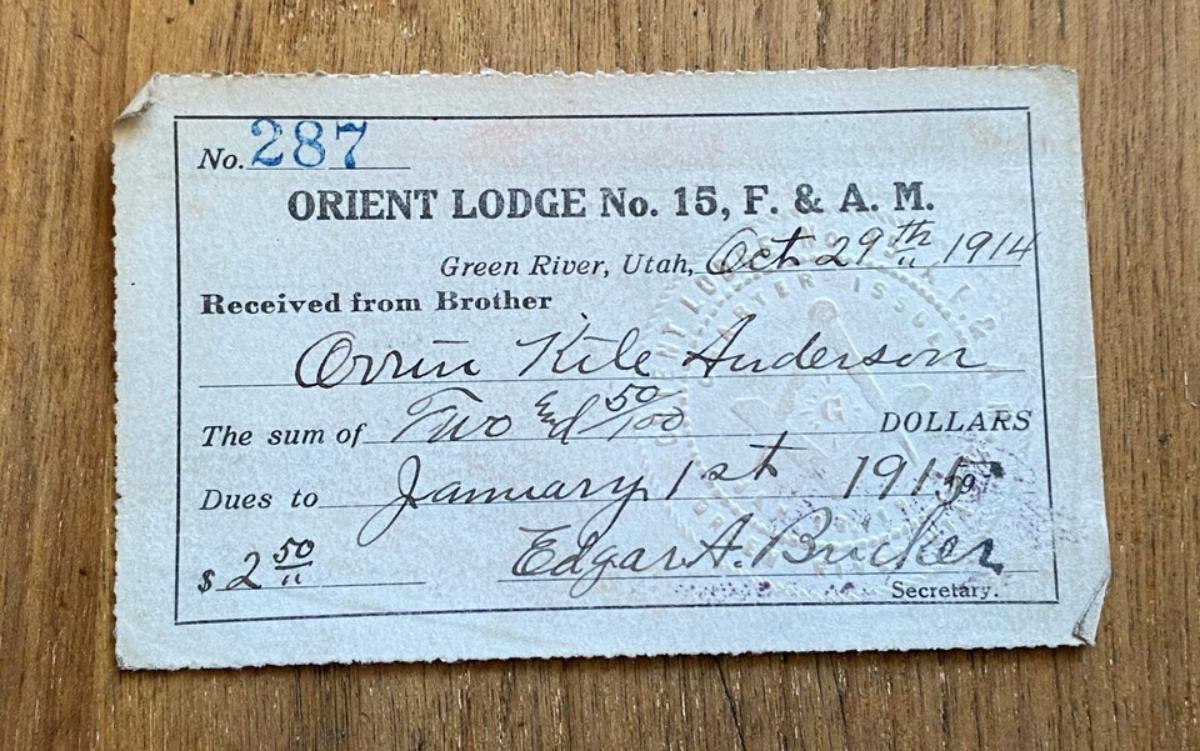 No. 287
ORIENT LODGE No. 15, F. & A. M.
Green River, Utah, Oct 29th 1914
Received from Brother
Orrin Kile Anderson
The sum of Two & 50/100 DOLLARS
Dues to January 1st 1915
$ 2 50
Edgar A.
Secretary.
CHARTER ISSUED
G